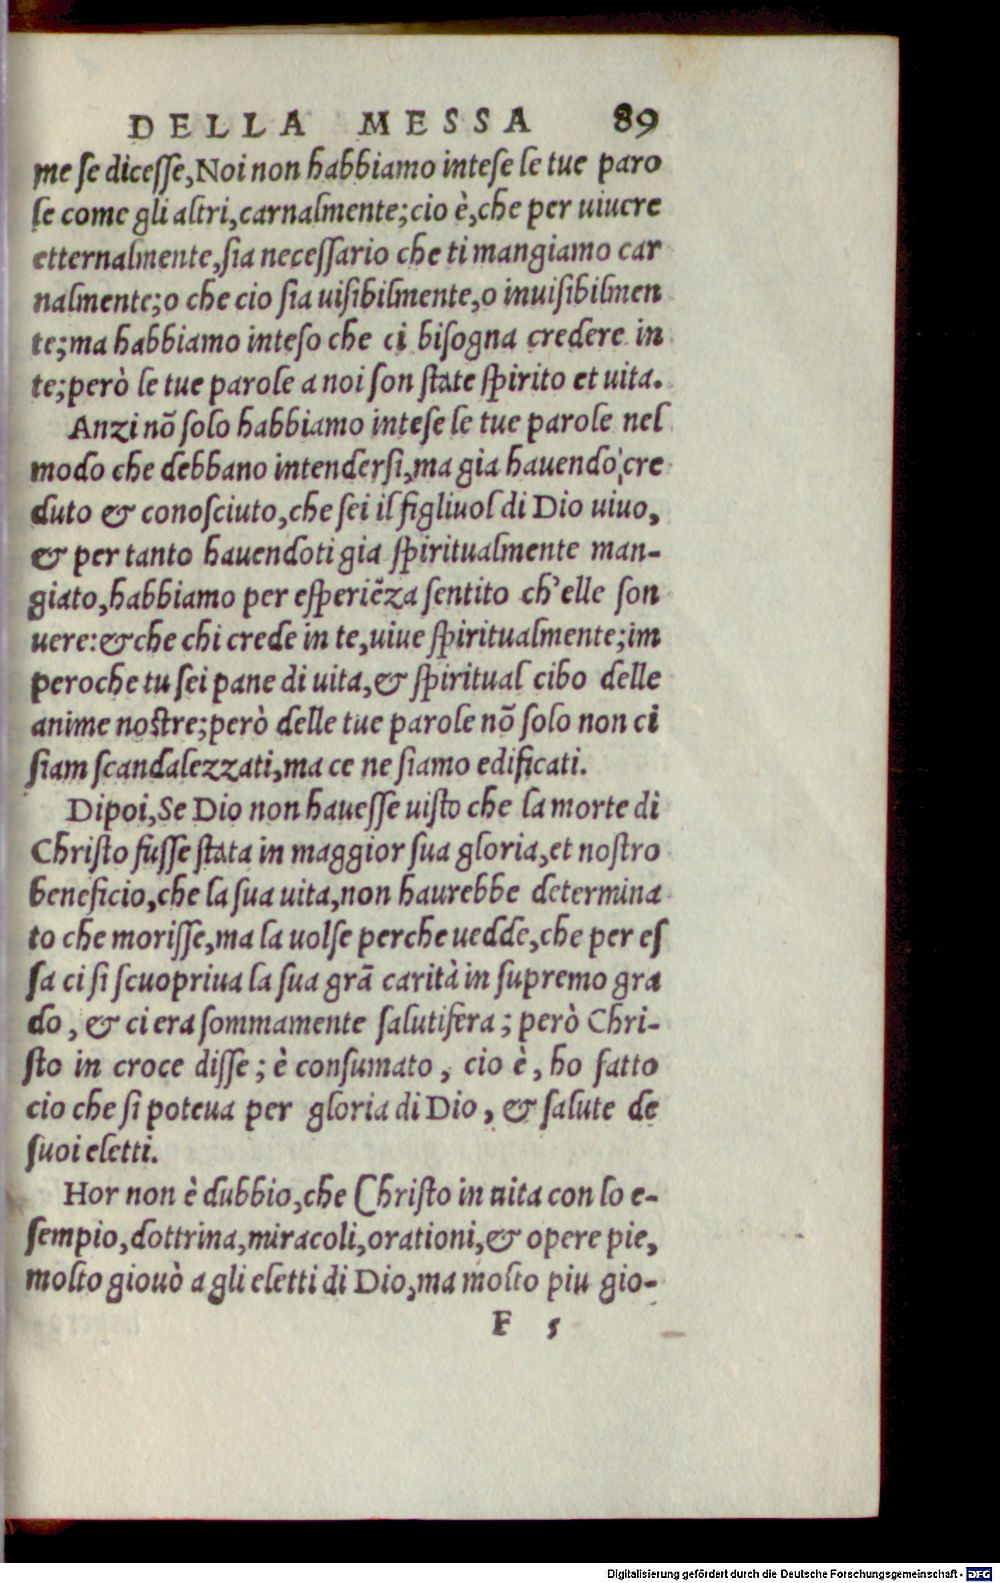 DELLA MESSA 89
me se dicesse, Noi non habbiamo intese le tue paro
le come gli altri, carnalmente; cio è, che per uiuere
etternalmente, sia necessario che ti mangiamo car
nalmente; o che cio sia uisibilmente, o inuisibilmen
te; ma habbiamo inteso che ci bisogna credere in
te; però le tue parole a noi son state spirito et uita.
Anzi nõ solo habbiamo intese le tue parole nel
modo che debbano intendersi, ma gia hauendo cre
duto & conosciuto, che sei il figliuol di Dio uiuo,
& per tanto hauendoti gia spiritualmente man-
giato, habbiamo per esperiẽza sentito ch'elle son
uere: & che chi crede in te, uiue spiritualmente; im
peroche tu sei pane di uita, & spiritual cibo delle
anime nostre; però delle tue parole nõ solo non ci
siam scandalezzati, ma ce ne siamo edificati.
Dipoi, Se Dio non hauesse uisto che la morte di
Christo fusse stata in maggior sua gloria, et nostro
beneficio, che la sua uita, non haurebbe determina
to che morisse, ma la uolse perche uedde, che per es
sa ci si scuopriua la sua grã carità in supremo gra
do, & ci era sommamente salutifera; però Chri-
sto in croce disse; è consumato, cio è, ho fatto
cio che si poteua per gloria di Dio, & salute de
suoi eletti.
Hor non è dubbio, che Christo in uita con lo e-
sempio, dottrina, miracoli, orationi, & opere pie,
molto giouò a gli eletti di Dio, ma molto piu gio-
F 5
Digitalisierung gefördert durch die Deutsche Forschungsgemeinschaft - DFG